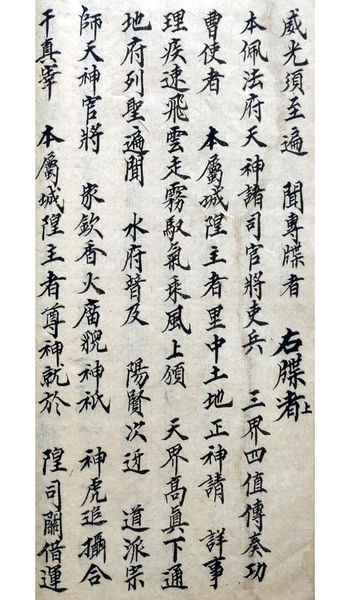 威光須至遍　聞專牒者　　右牒者上
本佩法府天神諸司官將吏兵　三界四值傳奏功
曹使者　本屬城隍主者里中土地正神請　詳事
理疾速飛雲走霧馭氣乘風上頒　天界高真下通
地府列聖遍聞　水府普及　陽賢次近　道派宗
師天神官將　家欽香火廟貌神祇　神虎追攝合
干真宰　本屬城隍主者尊神就於　隍司關借運